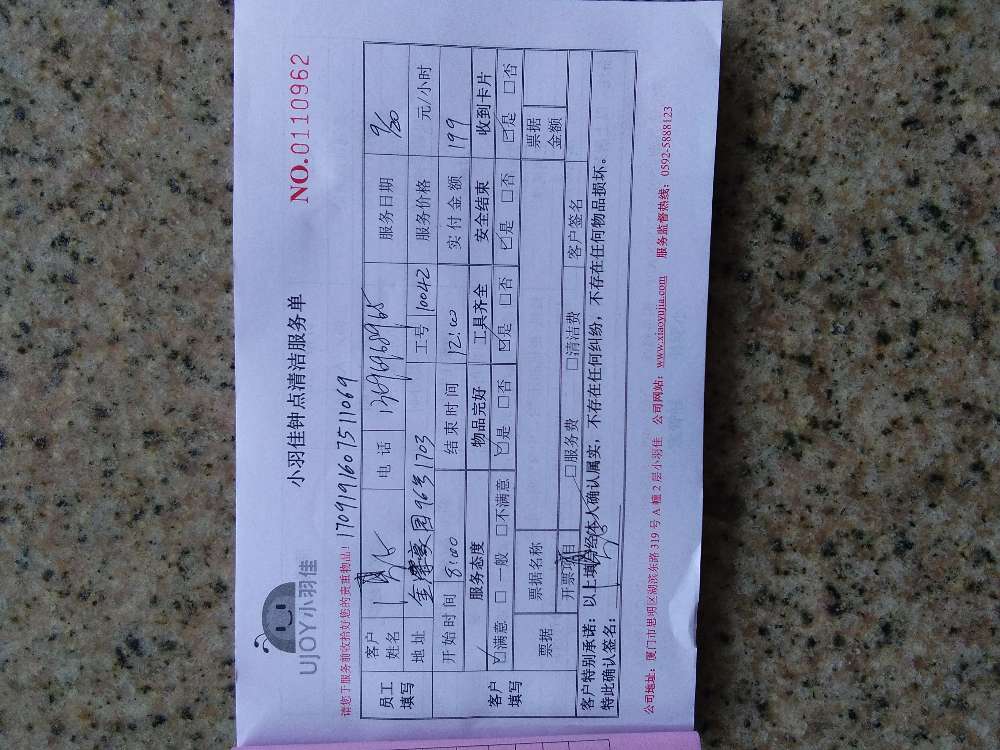 UJOY小羽佳
小羽佳钟点清洁服务单
NO.0110962
请您于服务前收拾好您的贵重物品！ 170919160751 1069
员工填写 客户姓名 电话 13696968965 服务日期 9/20
地址 96号1703 工号 10042 服务价格 元/小时
开始时间 8:00 结束时间 12:00 实付金额 199
客户填写 服务态度 物品完好 工具齐全 安全结束 收到卡片
☑满意 □一般 □不满意 ☑是 □否 ☑是 □否 ☑是 □否 ☑是 □否
票据 票据名称 票据金额
开票项目 □服务费 □清洁费 客户签名
客户特别承诺：以上填写经本人确认属实，不存在任何纠纷，不存在任何物品损坏。
特此确认签名：
公司地址：厦门市思明区湖滨东路 319 号 A 幢 2 层小羽佳 公司网站：www.xiaoyujia.com 服务监督热线：0592-5888123